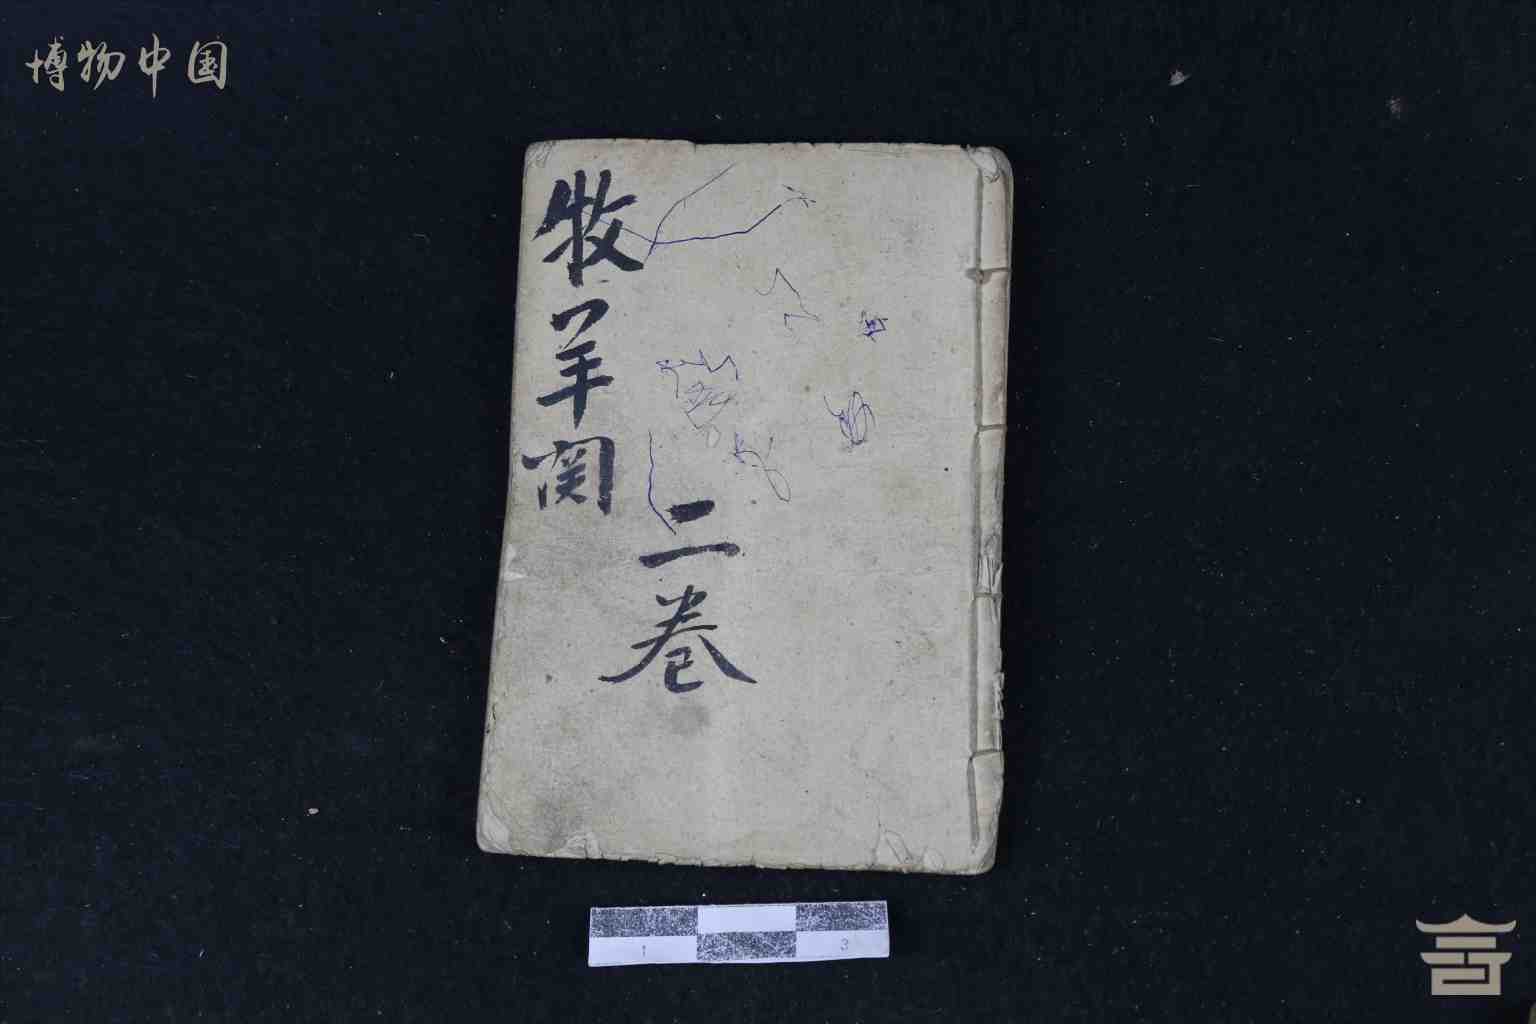 博物中国
牧羊関
二卷
1 3